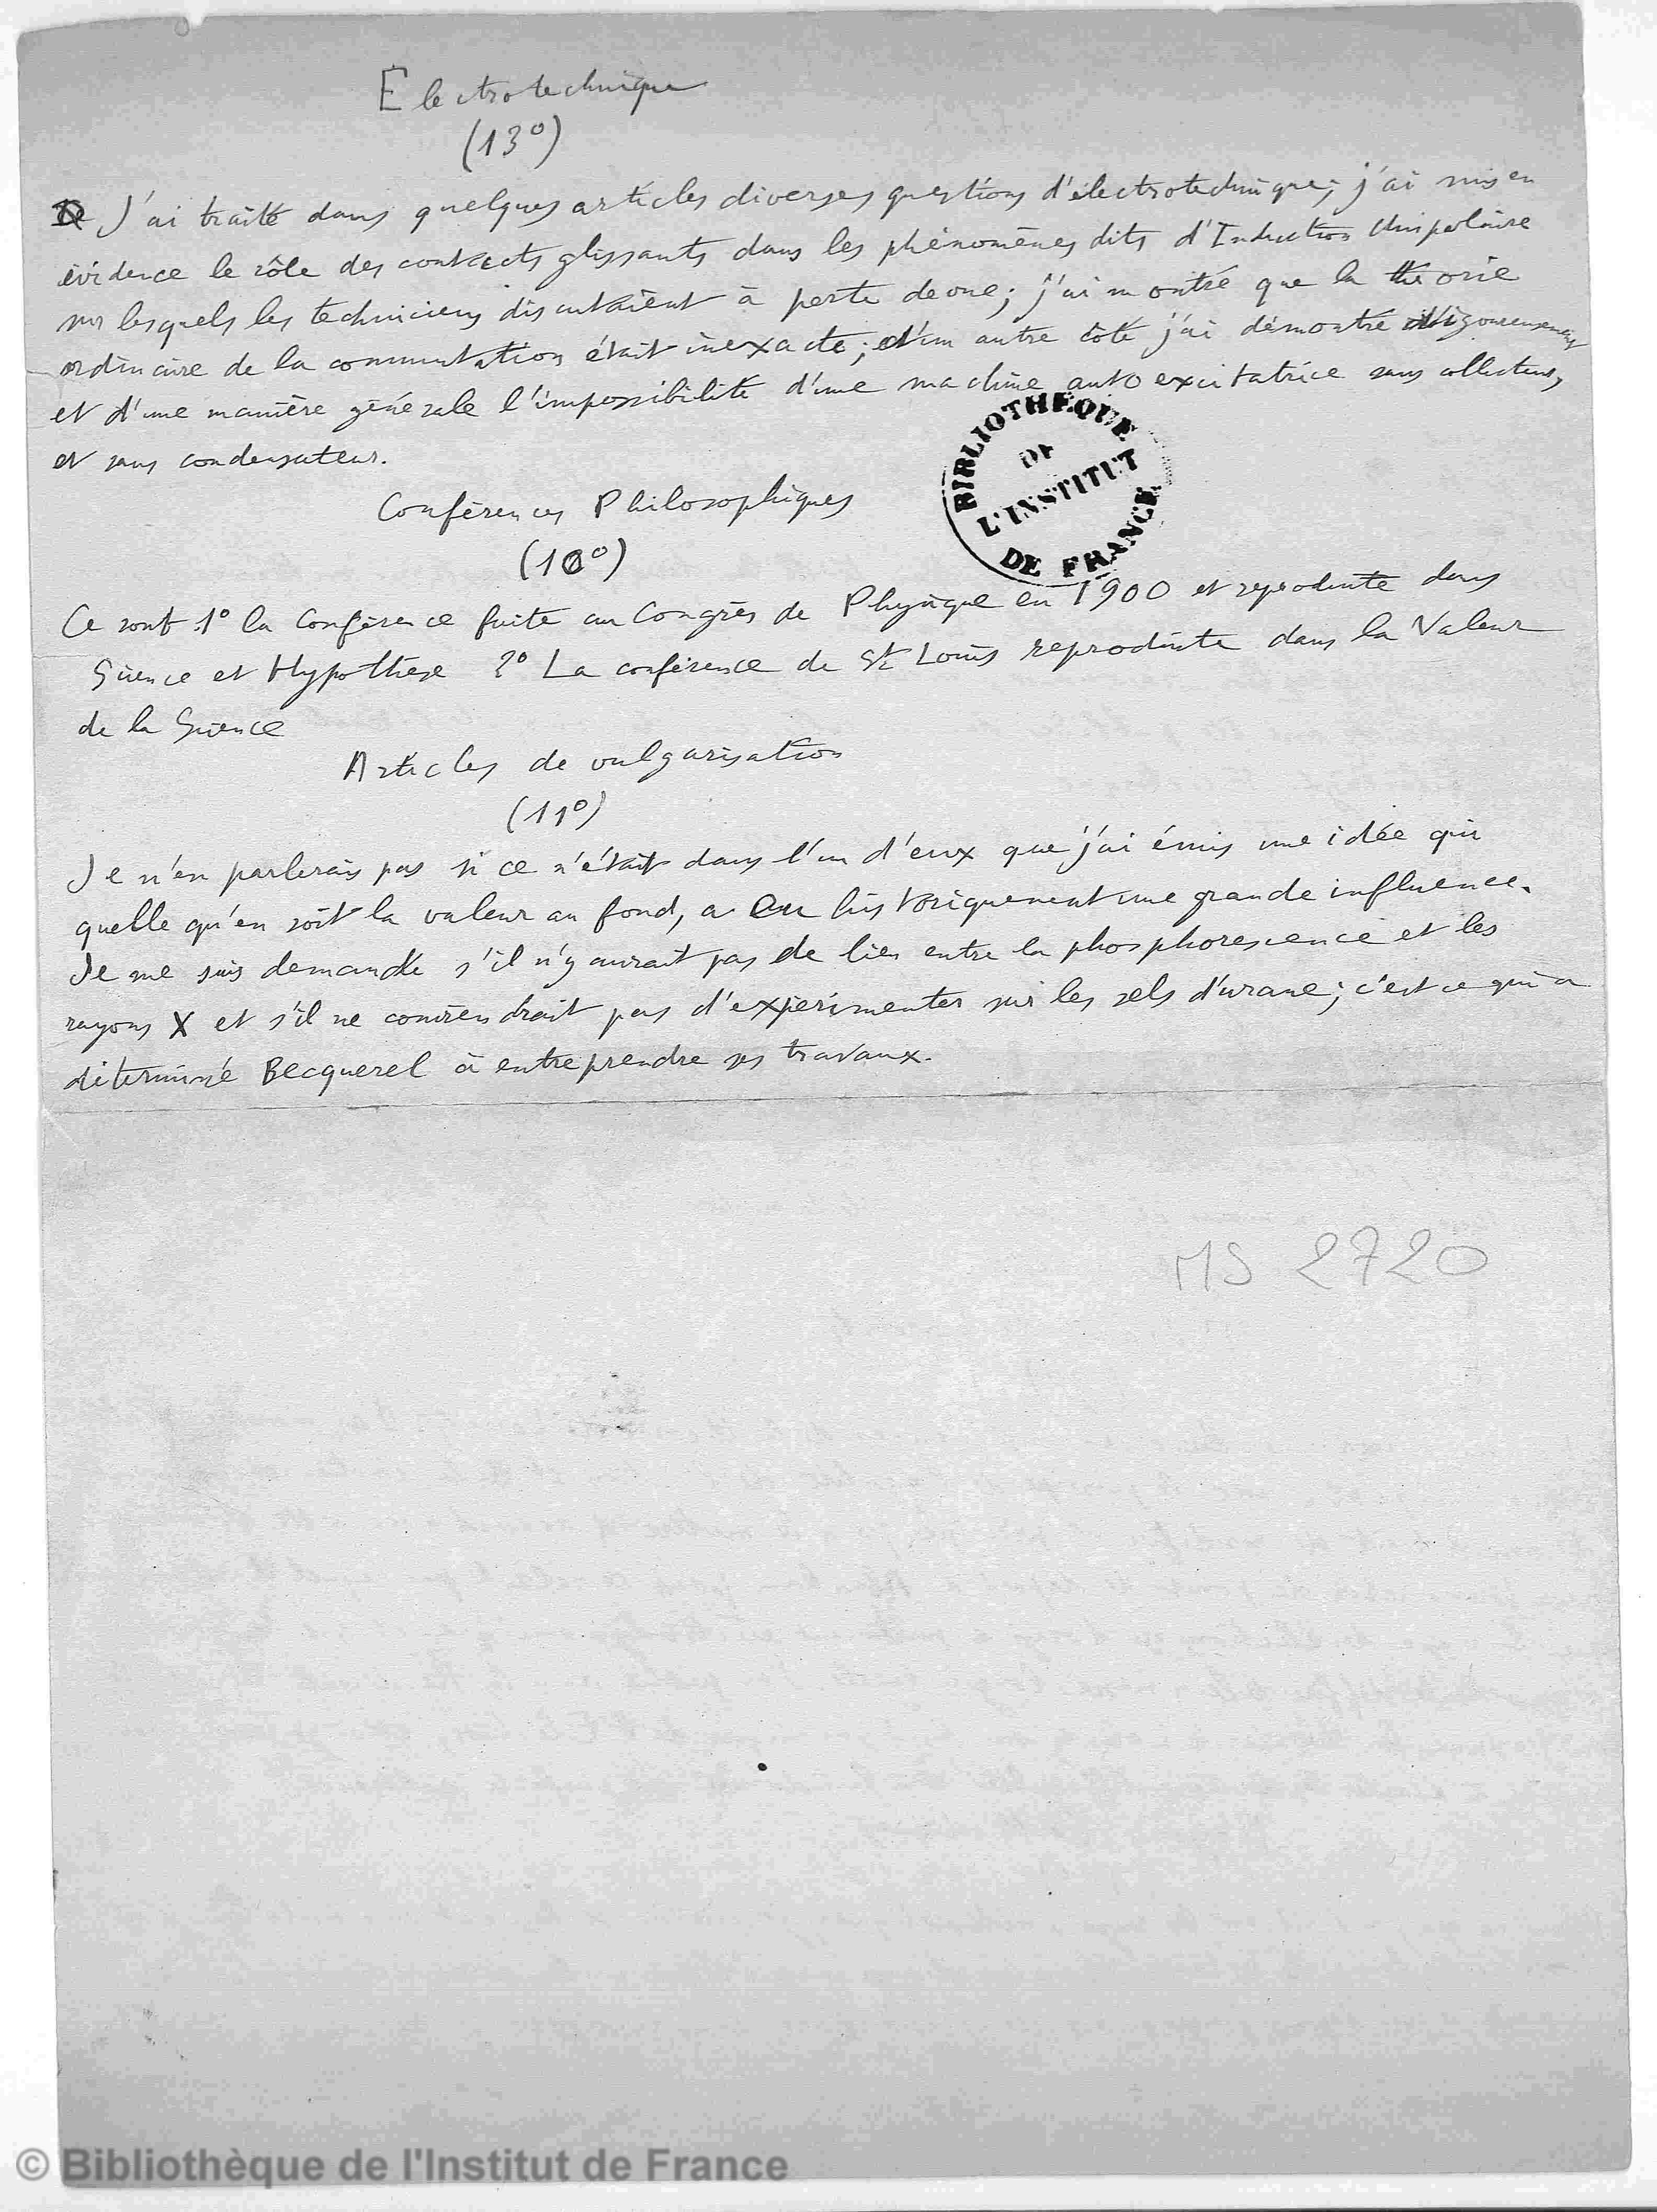 Electrotechnique
(13°)
J'ai traité dans quelques articles diverses questions d'électrotechnique; j'ai mis en
évidence le rôle des contacts glissants dans les phénomènes dits d'Induction Unipolaire
sur lesquels les techniciens discutaient à perte de vue; j'ai montré que la théorie
ordinaire de la commutation était inexacte; d'un autre côté j'ai démontré rigoureusement
et d'une manière générale l'impossibilité d'une machine autoexcitatrice sans collecteurs,
et sans condensateur.
BIBLIOTHEQUE
DE
L'INSTITUT
DE FRANCE
Conférences Philosophiques
(10°)
Ce sont 1° la Conférence faite au Congrès de Physique en 1900 et reproduite dans
Science et Hypothèse 2° La conférence de St Louis reproduite dans la Valeur
de la Science
Articles de vulgarisation
(11°)
Je n'en parlerais pas si ce n'était dans l'un d'eux que j'ai émis une idée qui
quelle qu'en soit la valeur au fond, a eu historiquement une grande influence.
Je me suis demandé s'il n'y aurait pas de lien entre la phosphorescence et les
rayons X et s'il ne conviendrait pas d'expérimenter sur les sels d'urane; c'est ce qui a
déterminé Becquerel à entreprendre ses travaux.
MS 2720
© Bibliothèque de l'Institut de France